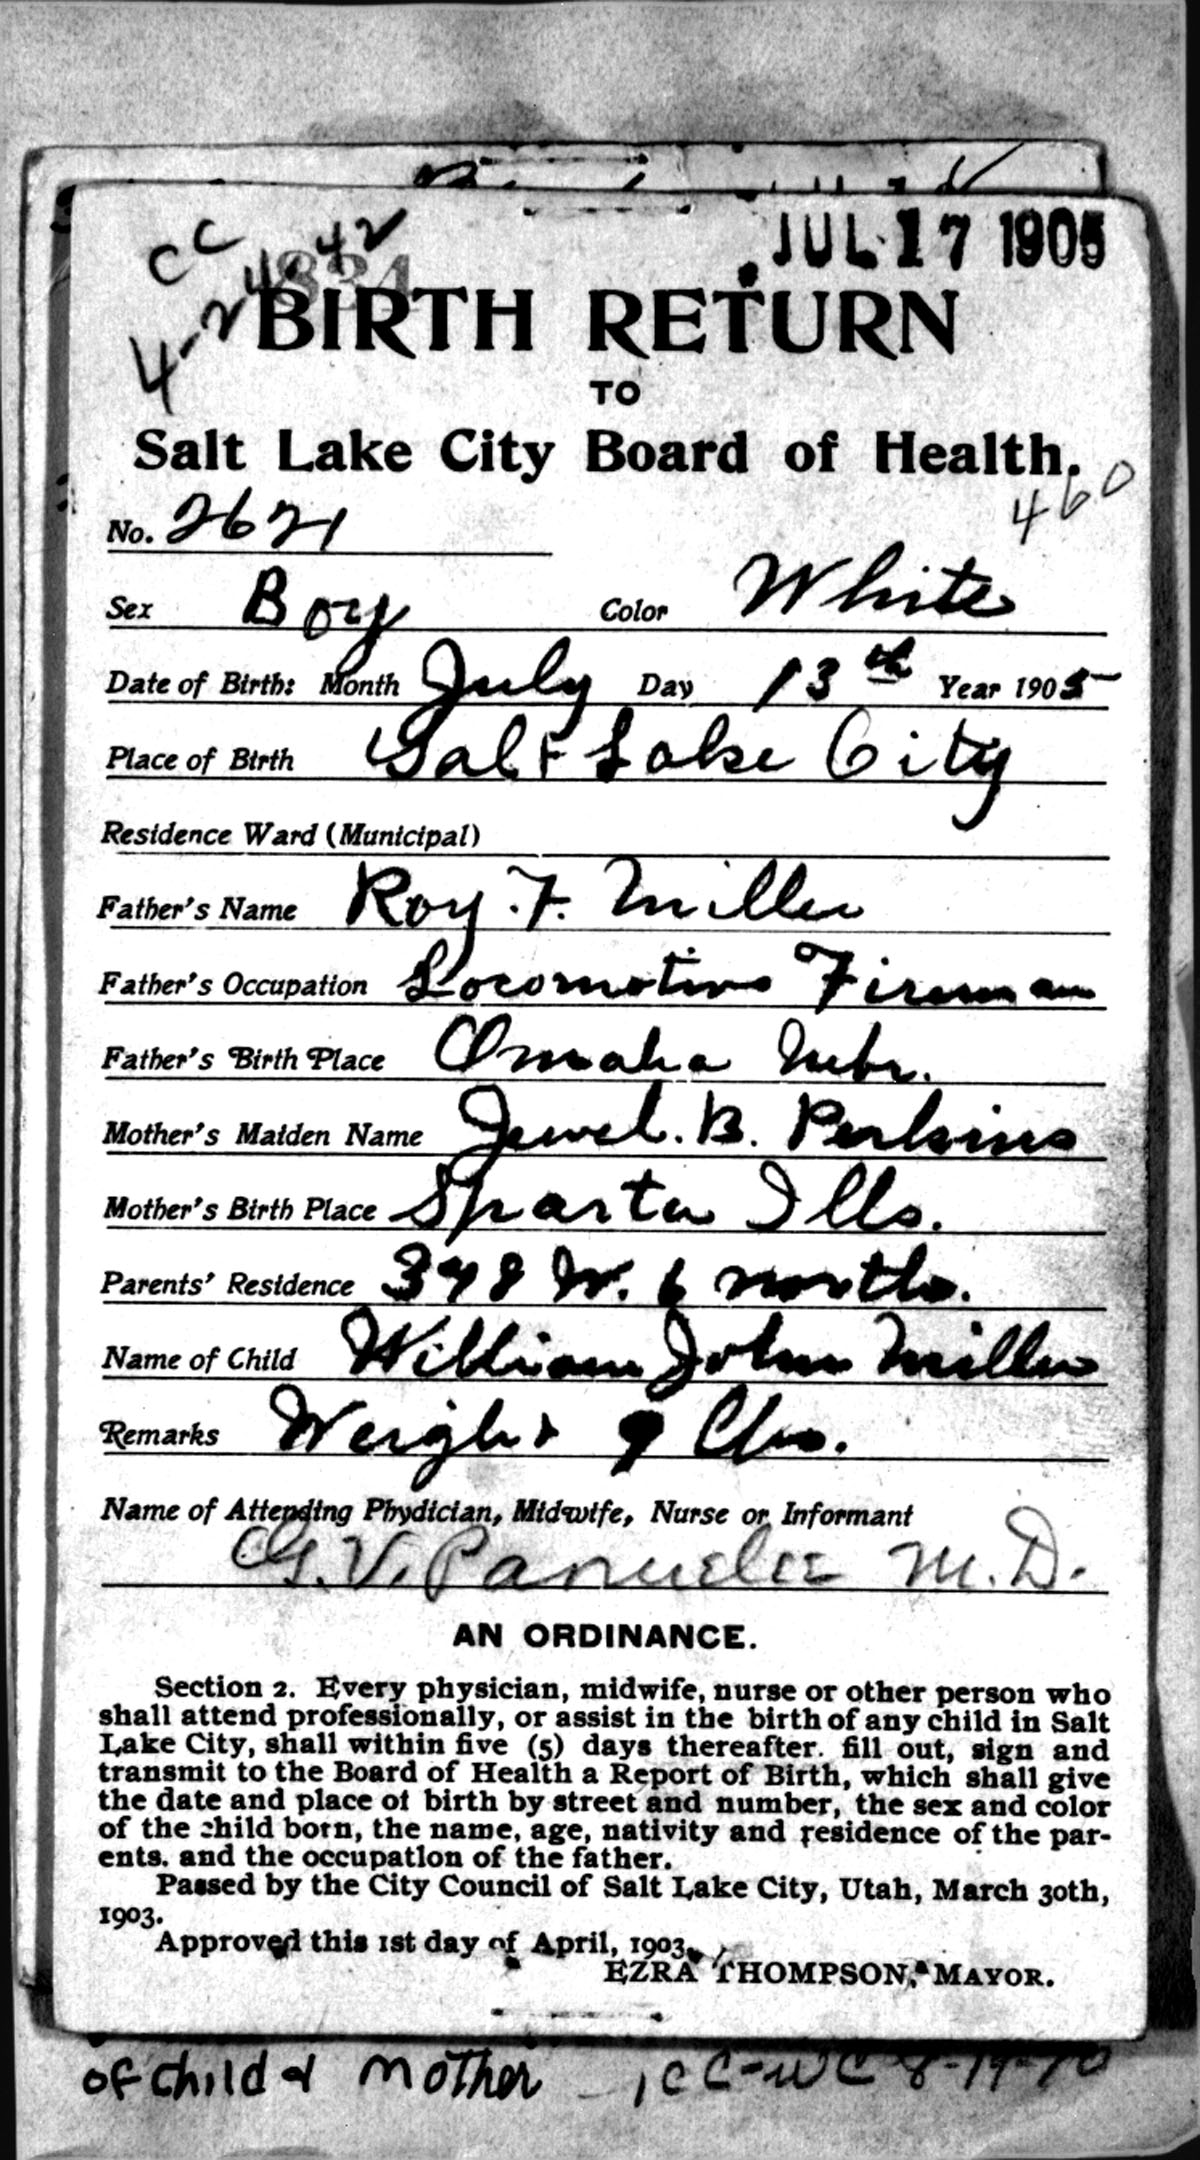 JUL 17 1905
CC
4-24-42
BIRTH RETURN
TO
Salt Lake City Board of Health.
460
No. 2621
Sex Boy Color White
Date of Birth: Month July Day 13th Year 1905
Place of Birth Salt Lake City
Residence Ward (Municipal)
Father's Name Roy. F. Miller
Father's Occupation Locomotive Fireman
Father's Birth Place Omaha Nebr.
Mother's Maiden Name Jewel. B. Perkins
Mother's Birth Place Sparta Ills.
Parents' Residence 348 W. 6 north.
Name of Child William John Miller
Remarks Weight 9 lbs.
Name of Attending Phydician, Midwife, Nurse or Informant
G. V. M. D.
AN ORDINANCE.
Section 2. Every physician, midwife, nurse or other person who
shall attend professionally, or assist in the birth of any child in Salt
Lake City, shall within five (5) days thereafter. fill out, sign and
transmit to the Board of Health a Report of Birth, which shall give
the date and place of birth by street and number, the sex and color
of the child born, the name, age, nativity and residence of the par-
ents. and the occupation of the father.
Passed by the City Council of Salt Lake City, Utah, March 30th,
1903.
Approved this 1st day of April, 1903.
EZRA THOMPSON, MAYOR.
of child & mother - 1CC-WC 8-19-70